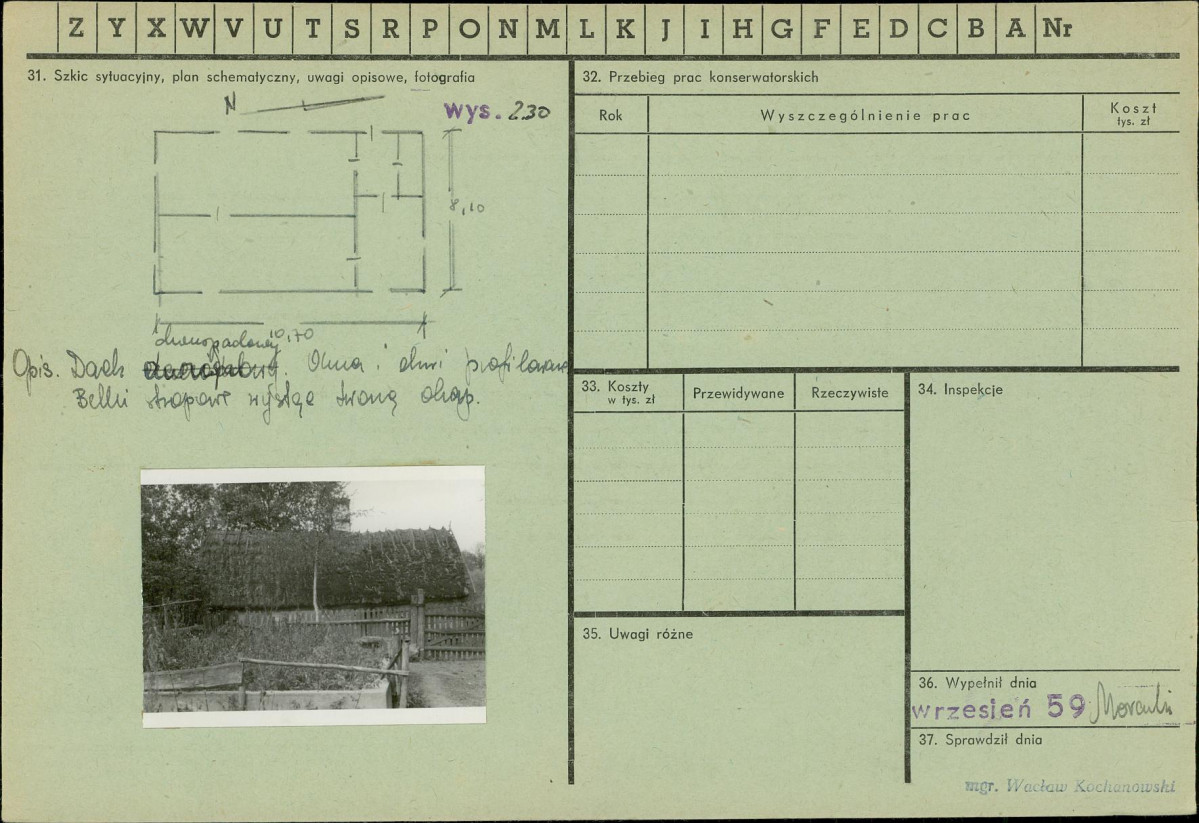 Z Y X W V U T S R P O N M L K J I H G F E D C B A Nr
31. Szkic sytuacyjny, plan schematyczny, uwagi opisowe, fotografia
N
wys. 230
8,10
10,70
dwuspadowy
Opis. Dach . Okna i drzwi profilowane
Belki stropowe tworzą okap.
32. Przebieg prac konserwatorskich
Rok
Wyszczególnienie prac
Koszt
tys. zł
33. Koszty
w tys. zł
Przewidywane
Rzeczywiste
34. Inspekcje
35. Uwagi różne
36. Wypełnił dnia
wrzesień 59
37. Sprawdził dnia
mgr. Wacław Kochanowski